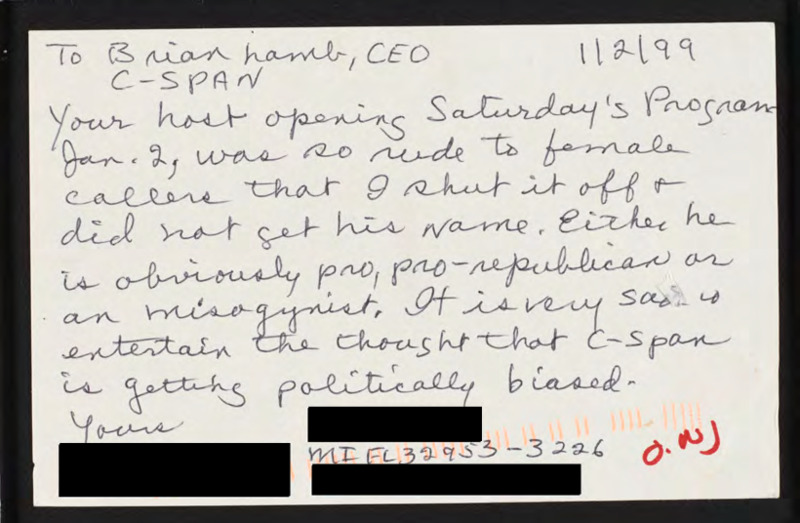 To Brian Lamb, CEO 1/2/99
C-SPAN
Your host opening Saturday's Program
Jan. 2, was so rude to female
callers that I shut it off &
did not get his name. Either he
is obviously pro, pro-republican or
an misogynist. It is very sad to
entertain the thought that C-Span
is getting politically biased.
Yours
MI FL 32953-3226